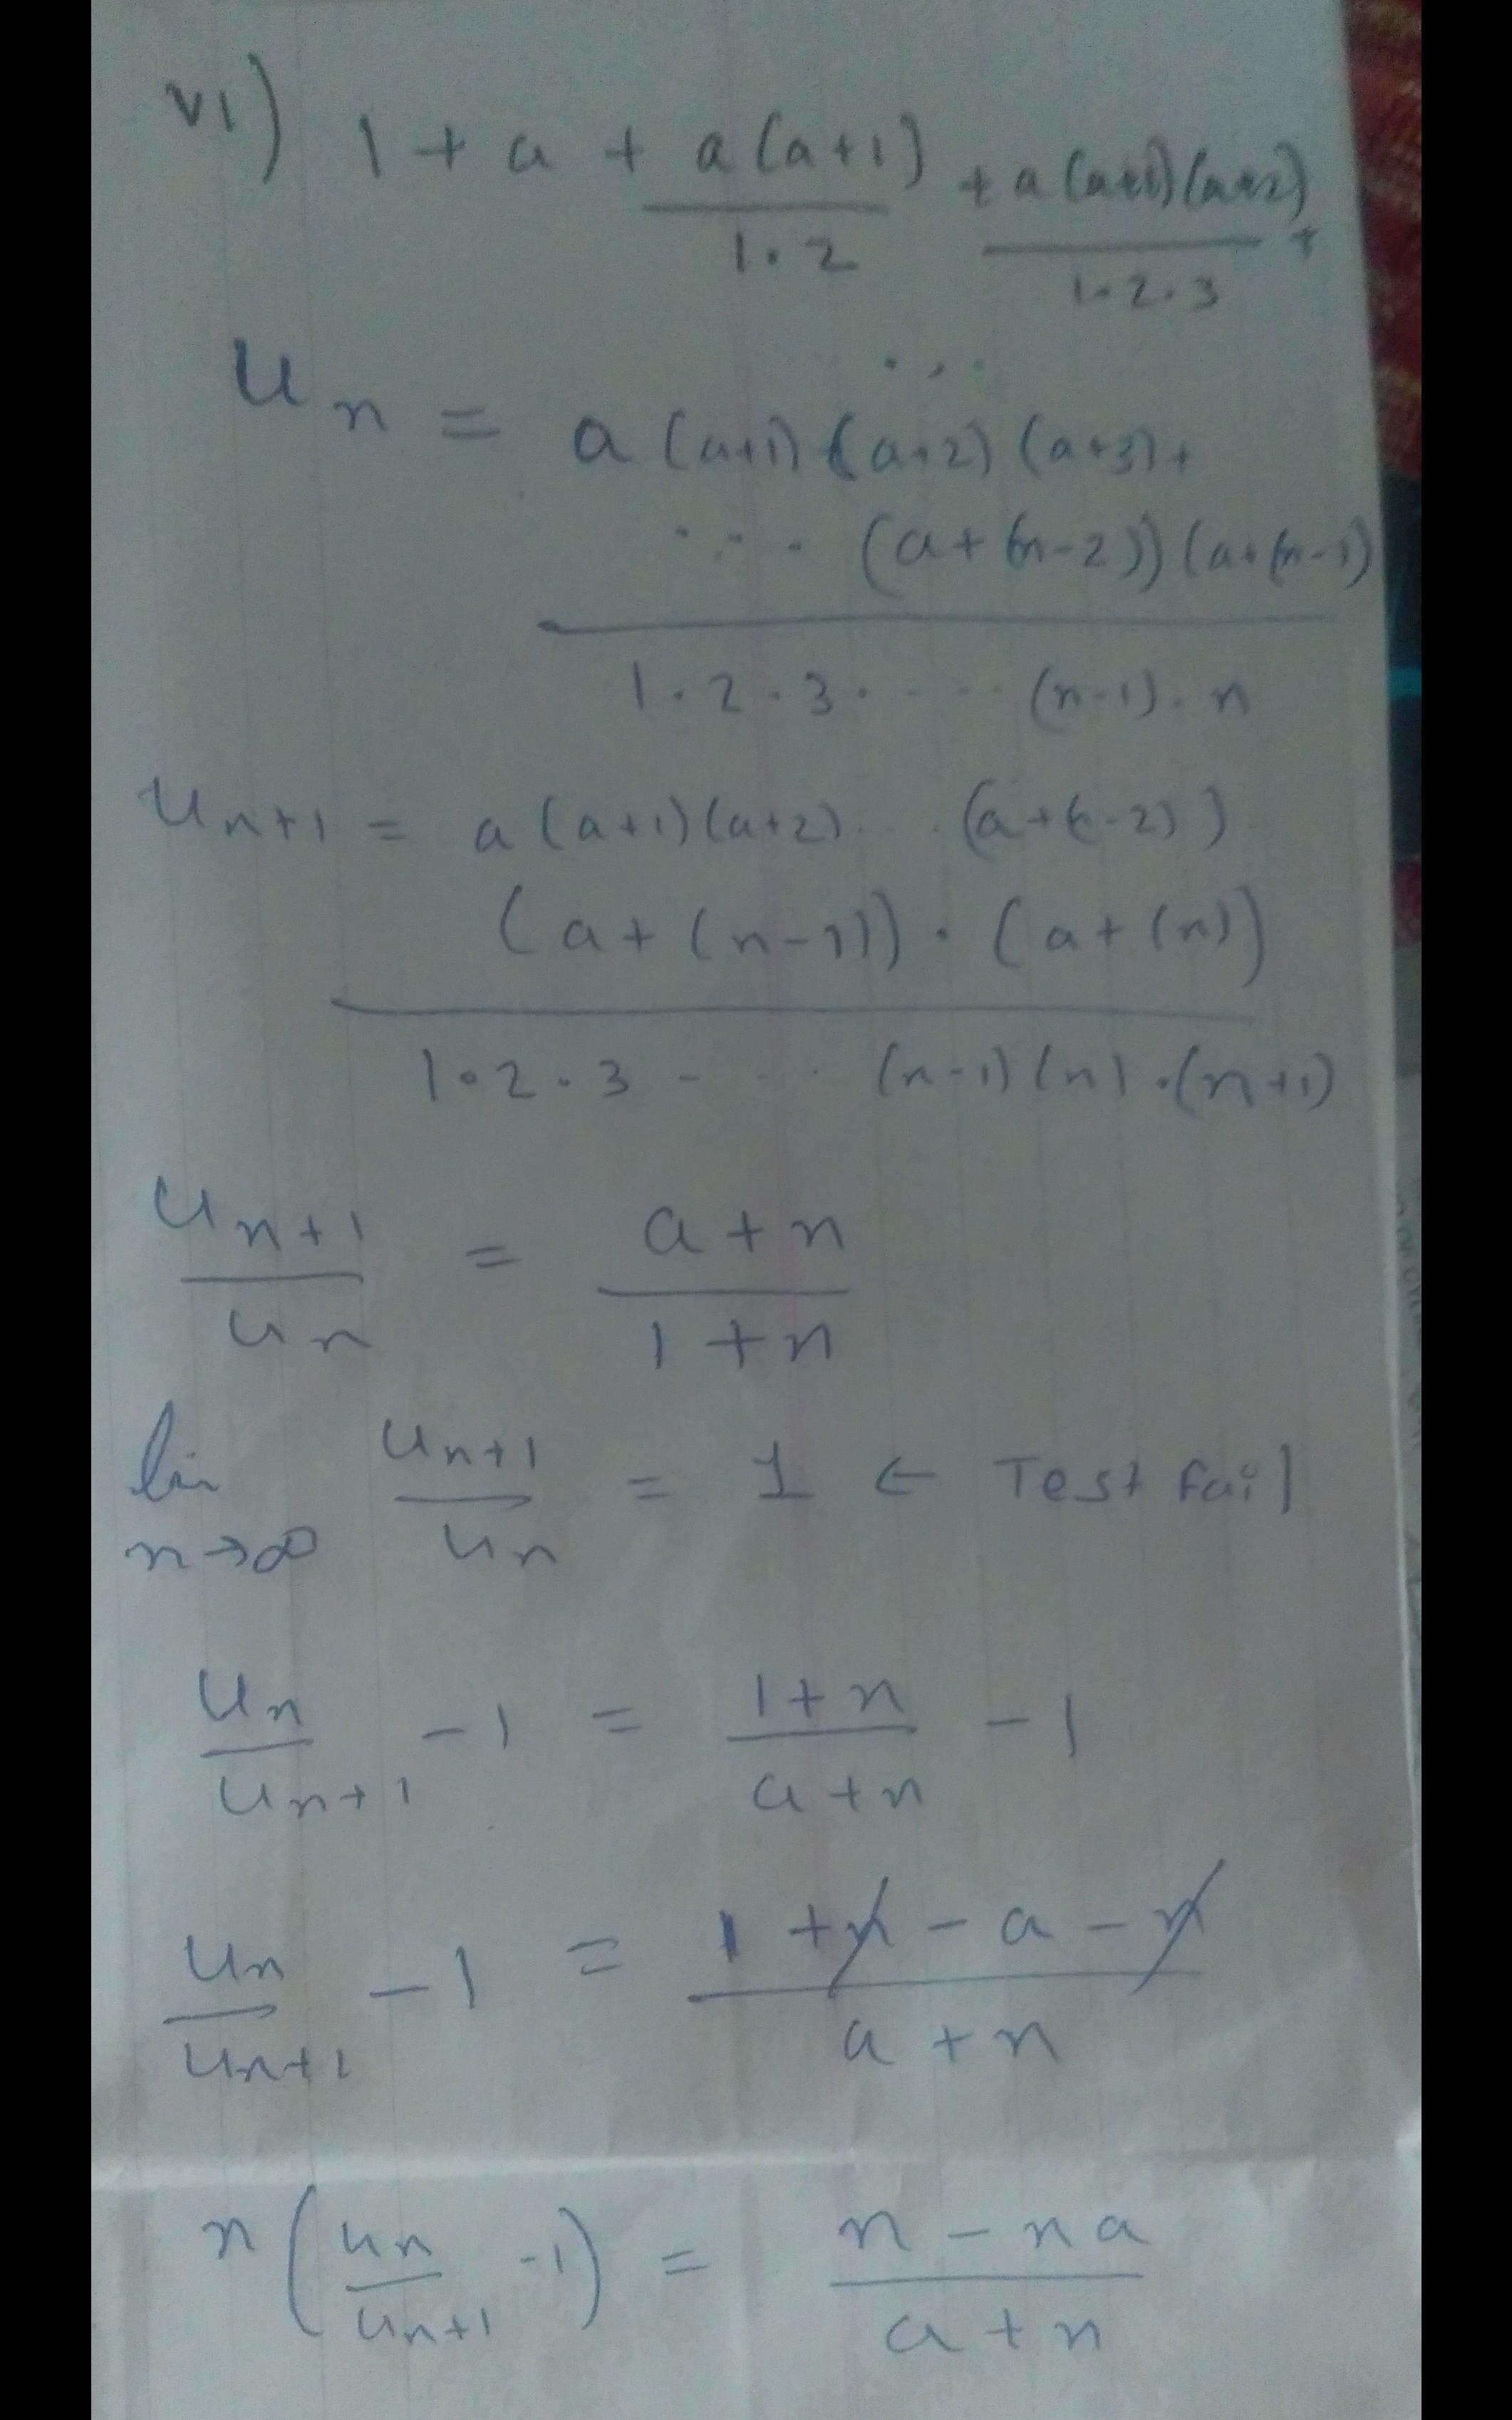 vi) 1 + a + a(a+1)/1·2 + a(a+1)(a+2)/1·2·3 +
...
un = a(a+1)(a+2)(a+3)+
.... (a+(n-2))(a+(n-1)
1·2·3· .... (n-1)·n
un+1 = a(a+1)(a+2)... (a+(-2))
(a+(n-1))·(a+(n))
1·2·3 - ... (n-1)(n)·(n+1)
un+1/un = a+n/1+n
lim n→∞ un+1/un = 1 ← Test fail
un/un+1 - 1 = 1+n/a+n - 1
un/un+1 - 1 = 1+n-a-n/a+n
n(un/un+1 -1) = n-na/a+n